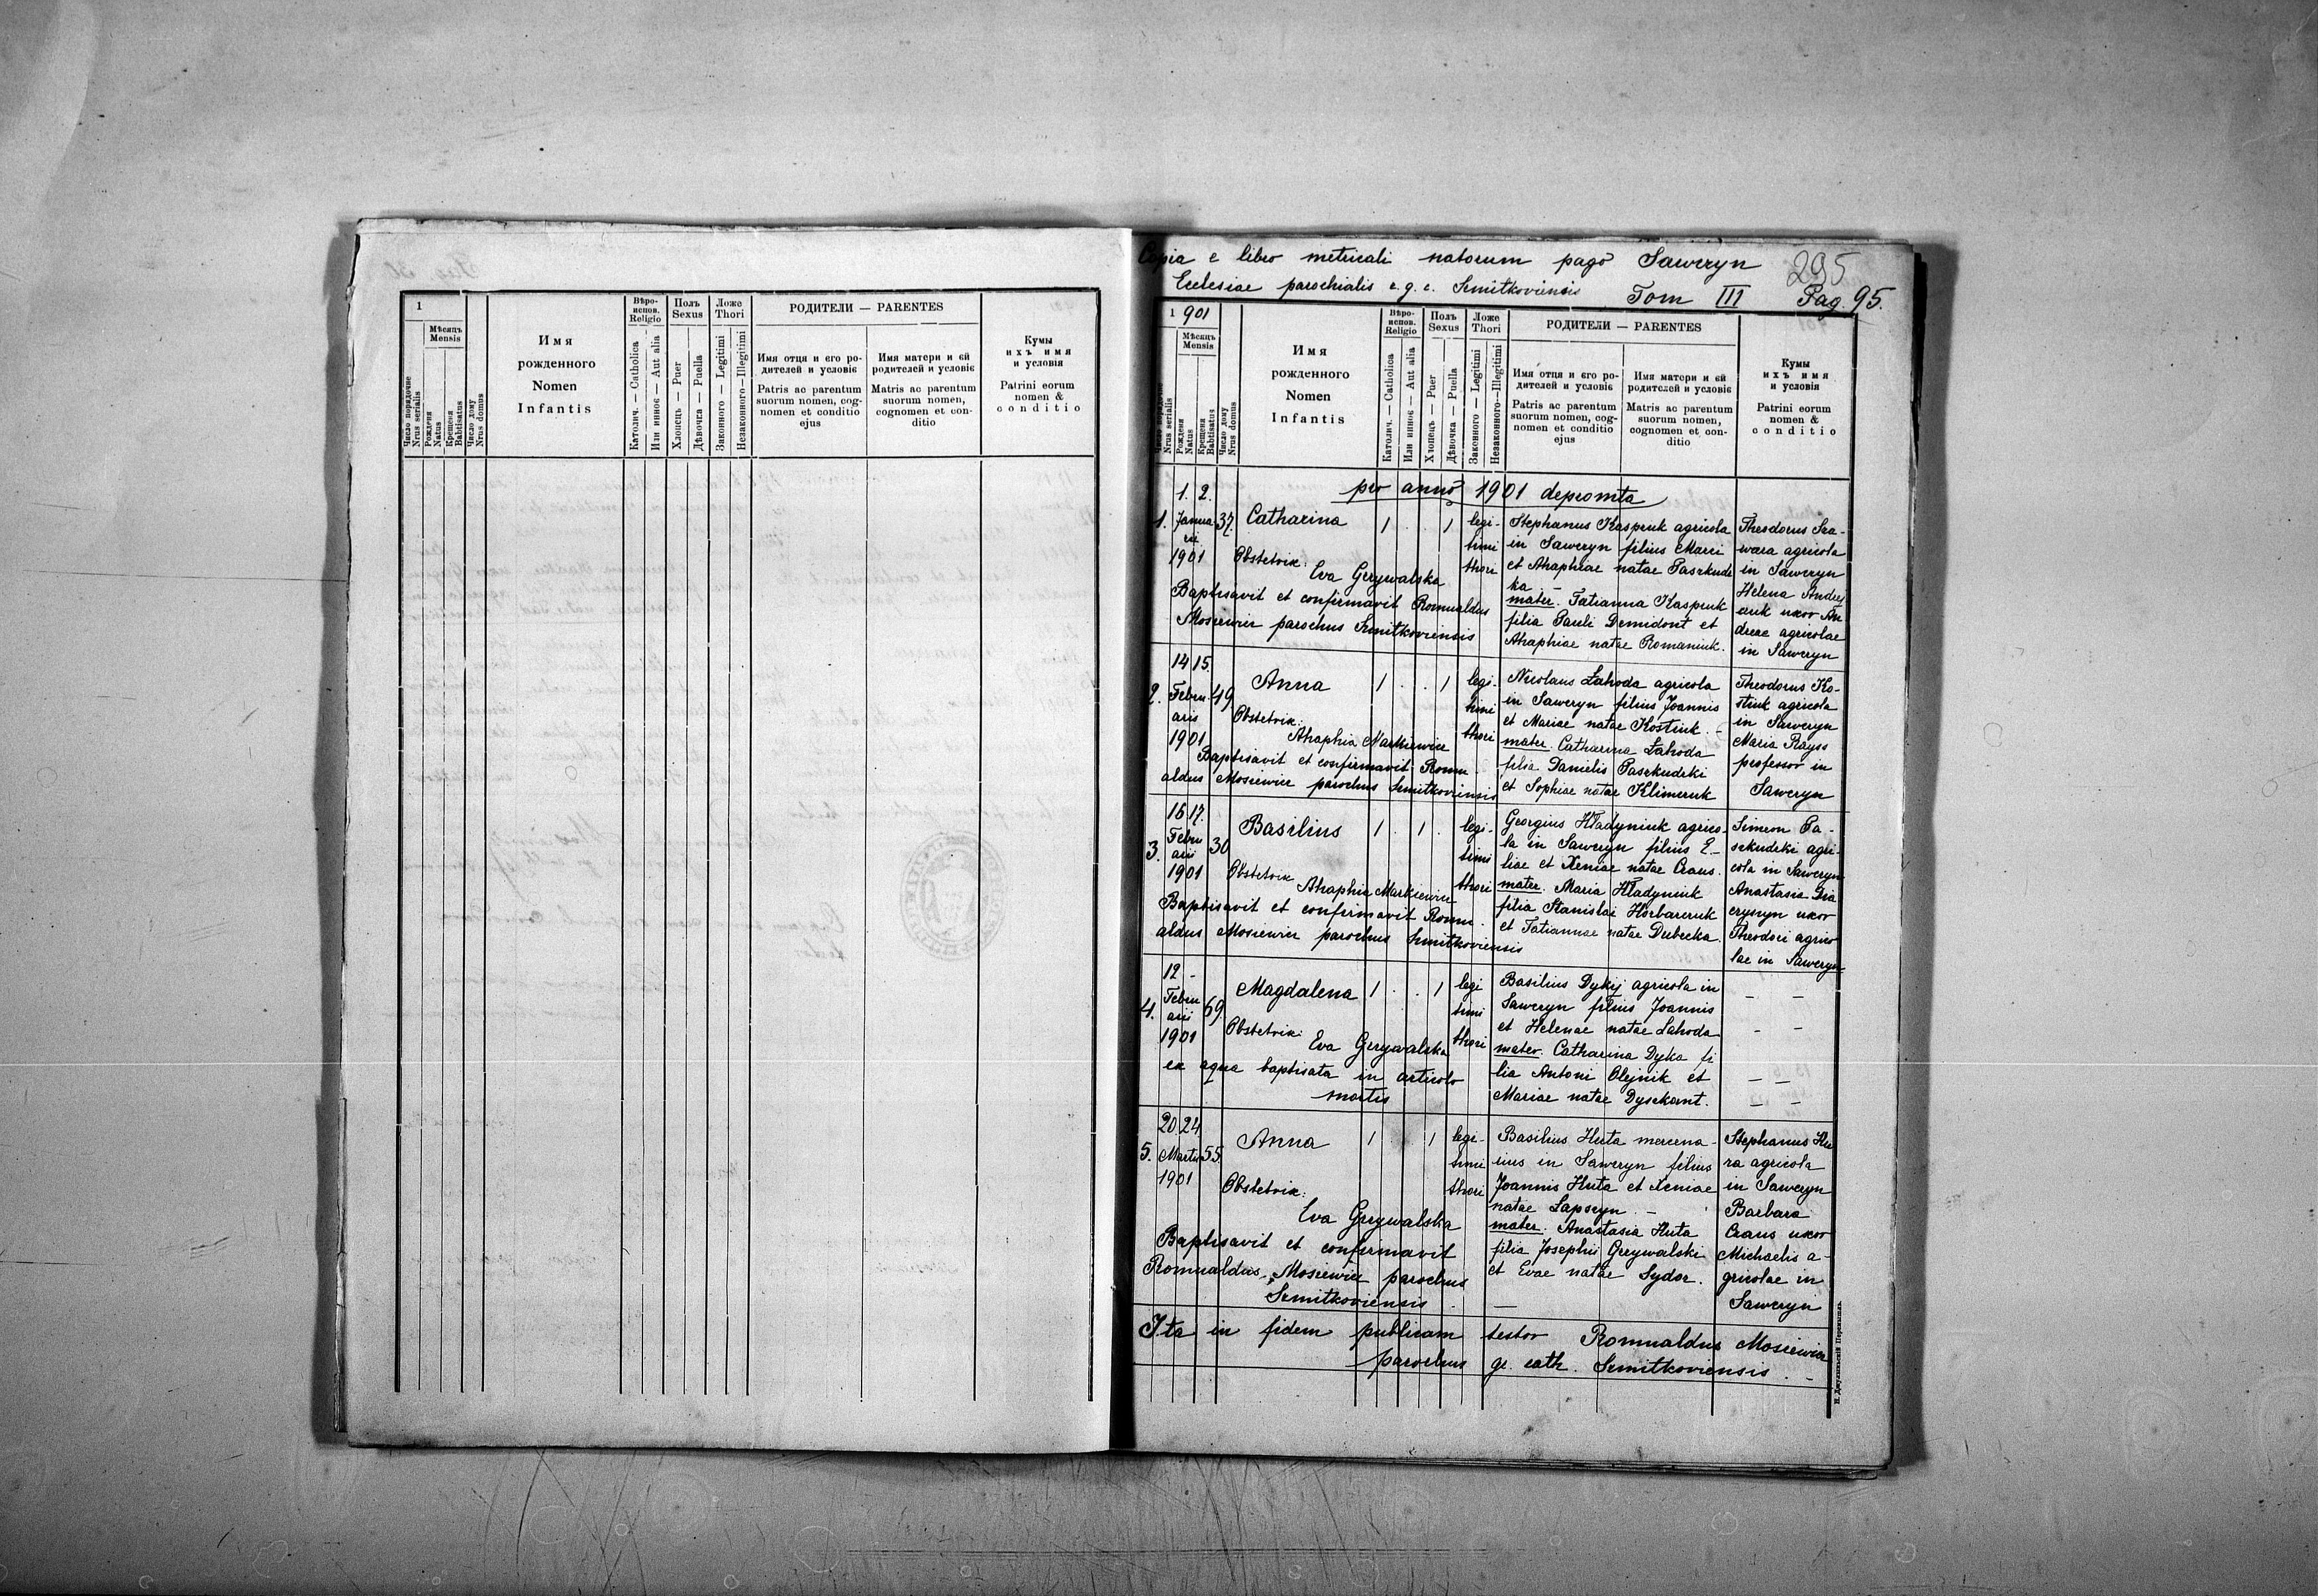 1
Мѣсяцъ
Mensis
Число порядочне
Nrus serialis
Рожденя
Natus
Крещеня
Babtisatus
Число дому
Nrus domus
Имя
рожденного
Nomen
Infantis
Вѣро-
испов.
Religio
Католич. — Catholica
Или инноє — Aut alia
Полъ
Sexus
Хлопець — Puer
Дѣвочка — Puella
Ложе
Thori
Законного — Legitimi
Незаконного — Illegitimi
РОДИТЕЛИ — PARENTES
Имя отця и єго ро-
дителей и условіє
Patris ac parentum
suorum nomen, cog-
nomen et conditio
ejus
Имя матери и єй
родителей и условіє
Matris ac parentum
suorum nomen,
cognomen et con-
ditio
Кумы
ихъ имя
и условія
Patrini eorum
nomen &
conditio
Copia e libro metricali natorum pago Saweryn
295
Ecclesiae parochialis r. g. c. Szmitkoviensis Tom III Pag. 95.
1901
Мѣсяцъ
Mensis
Nrus serialis
Рожденя
Natus
Крещеня
Babtisatus
Число дому
Nrus domus
Имя
рожденного
Nomen
Infantis
Вѣро-
испов.
Religio
Католич. — Catholica
Или инноє — Aut alia
Полъ
Sexus
Хлопець — Puer
Дѣвочка — Puella
Ложе
Thori
Законного — Legitimi
Незаконного — Illegitimi
РОДИТЕЛИ — PARENTES
Имя отця и єго ро-
дителей и условіє
Patris ac parentum
suorum nomen, cog-
nomen et conditio
ejus
Имя матери и єй
родителей и условіє
Matris ac parentum
suorum nomen,
cognomen et con-
ditio
Кумы
ихъ имя
и условія
Patrini eorum
nomen &
conditio
pro anno 1901 depromta
1. 2.
1. Janua
rii
1901
37
Catharina
1 . . 1
legi-
timi
thori
Obstetrix:
Eva Gerywalska
Baptisavit et confirmavit Romualdus
Mosiewicz parochus Szmitkoviensis
Stephanus Kaspruk agricola
in Saweryn filius Marci
et Ahaphiae natae Paszkude
ka -
mater. Tatianna Kaspruk
filia Pauli Demidont et
Ahaphiae natae Romaniuk.
Theodorus Sza-
wara agricola
in Saweryn
Helena Andrej
czuk uxor An
dreae agricolae
in Saweryn
14 15.
2. Febru
aris
1901
49
Anna
1 . . 1
legi-
timi
thori
Obstetrix:
Ahaphia Markiewicz
Baptisavit et confirmavit Romu
aldus Mosiewicz parochus Szmitkoviensis
Nicolaus Łahoda agricola
in Saweryn filius Joannis
et Mariae natae Kostiuk. -
mater. Catharina Łahoda
filia Danielis Paszkudzki
et Sophiae natae Klimczuk
Theodorus Ko-
stiuk agricola
in Saweryn
Maria Rayss
professor in
Saweryn
16 17.
3. Febru
arii
1901
30
Basilius
1 . 1 .
legi-
timi
thori
Obstetrix
Ahaphia Markiewicz
Baptisavit et confirmavit Romu
aldus Mosiewicz parochus Szmitkoviensis
Georgius Hładyniuk agrico-
la in Saweryn filius E-
liae et Xeniae natae Czaus.
mater. Maria Hładyniuk
filia Stanislai Horbaczuk
et Tatiannae natae Dubecka.
Simeon Pa-
szkudzki agri-
cola in Saweryn
Anastasia Dia
czyszyn uxor
Theodori agrico
lae in Saweryn
12 -
4. Febru
arii
1901
69.
Magdalena
1 . . 1
legi
timi
thori
Obstetrix:
Eva Gerywalska
ex aqua baptisata in articolo
mortis
Basilius Dykij agricola in
Saweryn filius Joannis
et Helenae natae Łahoda
mater. Catharina Dyka fi
lia Antoni Olejnik et
Mariae natae Dyszkant.
20 24
5. Martii
1901
55.
Anna
1 1
legi-
timi
thori
Obstetrix:
Eva Grzywalska
Baptisavit et confirmavit
Romualdus Mosiewicz parochus
Szmitkoviensis
Basilius Huta mercena-
rius in Saweryn filius
Joannis Huta et Xeniae
natae Łapszyn. -
mater. Anastasia Huta
filia Josephi Grzywalski
et Evae natae Sydor. -
Stephanus Hu
ra agricola
in Saweryn
Barbara
Czaus uxor
Michaelis a-
gricolae in
Saweryn
Ita in fidem publicam testor Romualdus Mosiewicz
parochus gr. cath. Szmitkoviensis. -